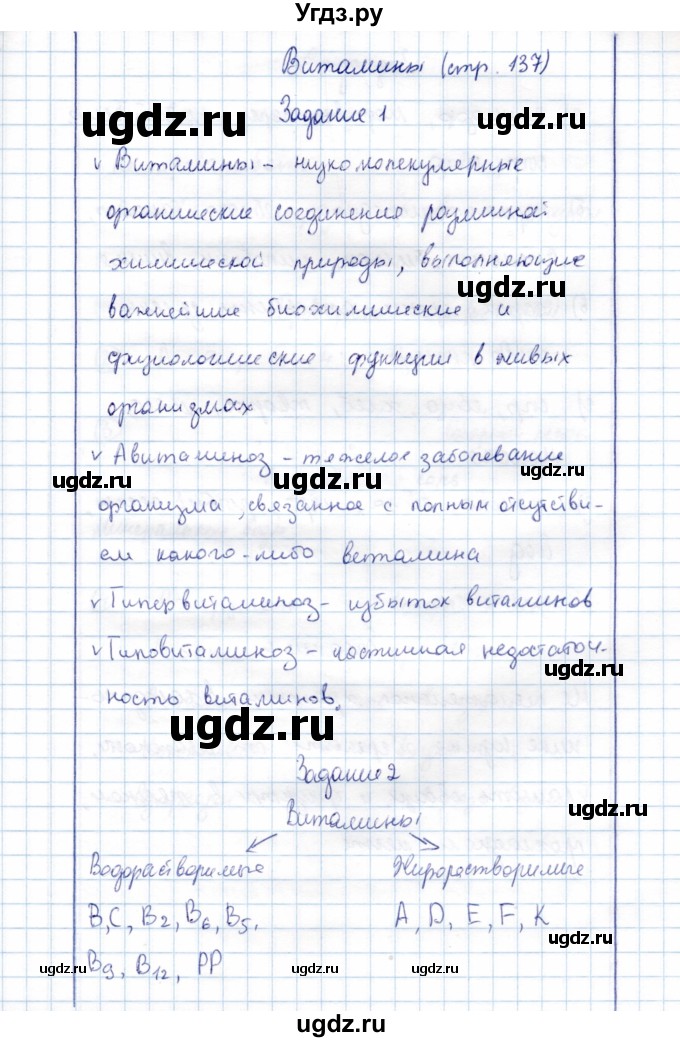 Угдз.ру
Витамины (стр. 137)
Задание 1
v Витамины – низкомолекулярные
органические соединения различной
химической природы, выполняющие
важнейшие биохимические и
физиологические функции в живых
организмах
v Авитаминоз – тяжелое заболевание
организма, связанное с полным отсутстви-
ем какого-либо витамина
v Гипервитаминоз – избыток витаминов
v Гиповитаминоз – частичная недостаточ-
ность витаминов.
Задание 2
Витамины
Водорастворимые Жирорастворимые
B, C, B2, B6, B5, A, D, E, F, K
B9, B12, PP
ugdz.ru
ugdz.ru
ugdz.ru
ugdz.ru
ugdz.ru
ugdz.ru
ugdz.ru
ugdz.ru
ugdz.ru
ugdz.ru
ugdz.ru
ugdz.ru